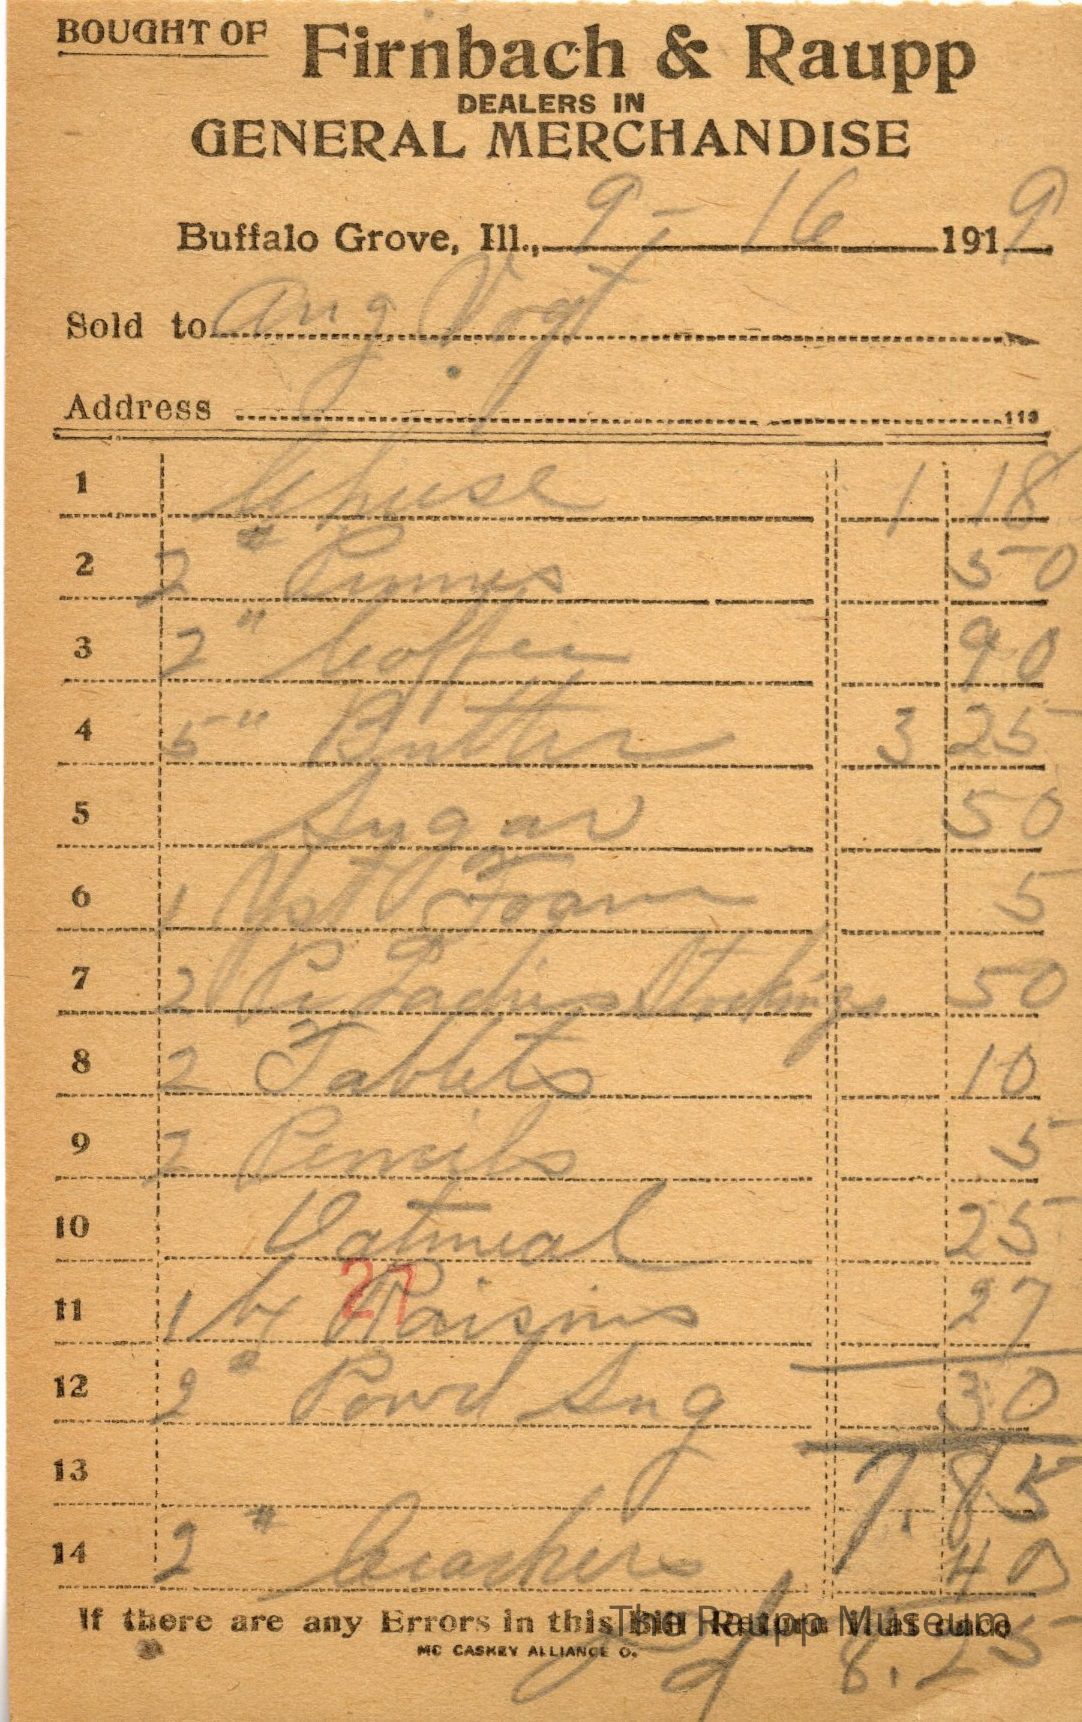 BOUGHT OF Firnbach & Raupp
DEALERS IN
GENERAL MERCHANDISE
Buffalo Grove, Ill., 9-16 1919
Sold to Aug Vogt
Address 113
1 Cheese 1 18
2 2 # Prunes 50
3 2 " Coffee 90
4 5 " Butter 3 25
5 Sugar 50
6 1 Yst Foam 5
7 2 Pr Ladies Stockings 50
8 2 Tablets 10
9 2 Pencils 5
10 Oatmeal 25
11 1 Raisins 27
21
12 2 # Powd Sug 30
13 7.85
14 2 # Crackers 40
If there are any Errors in this Bill Return it at once
The Raupp Museum
8.25
MC CASKEY ALLIANCE O.